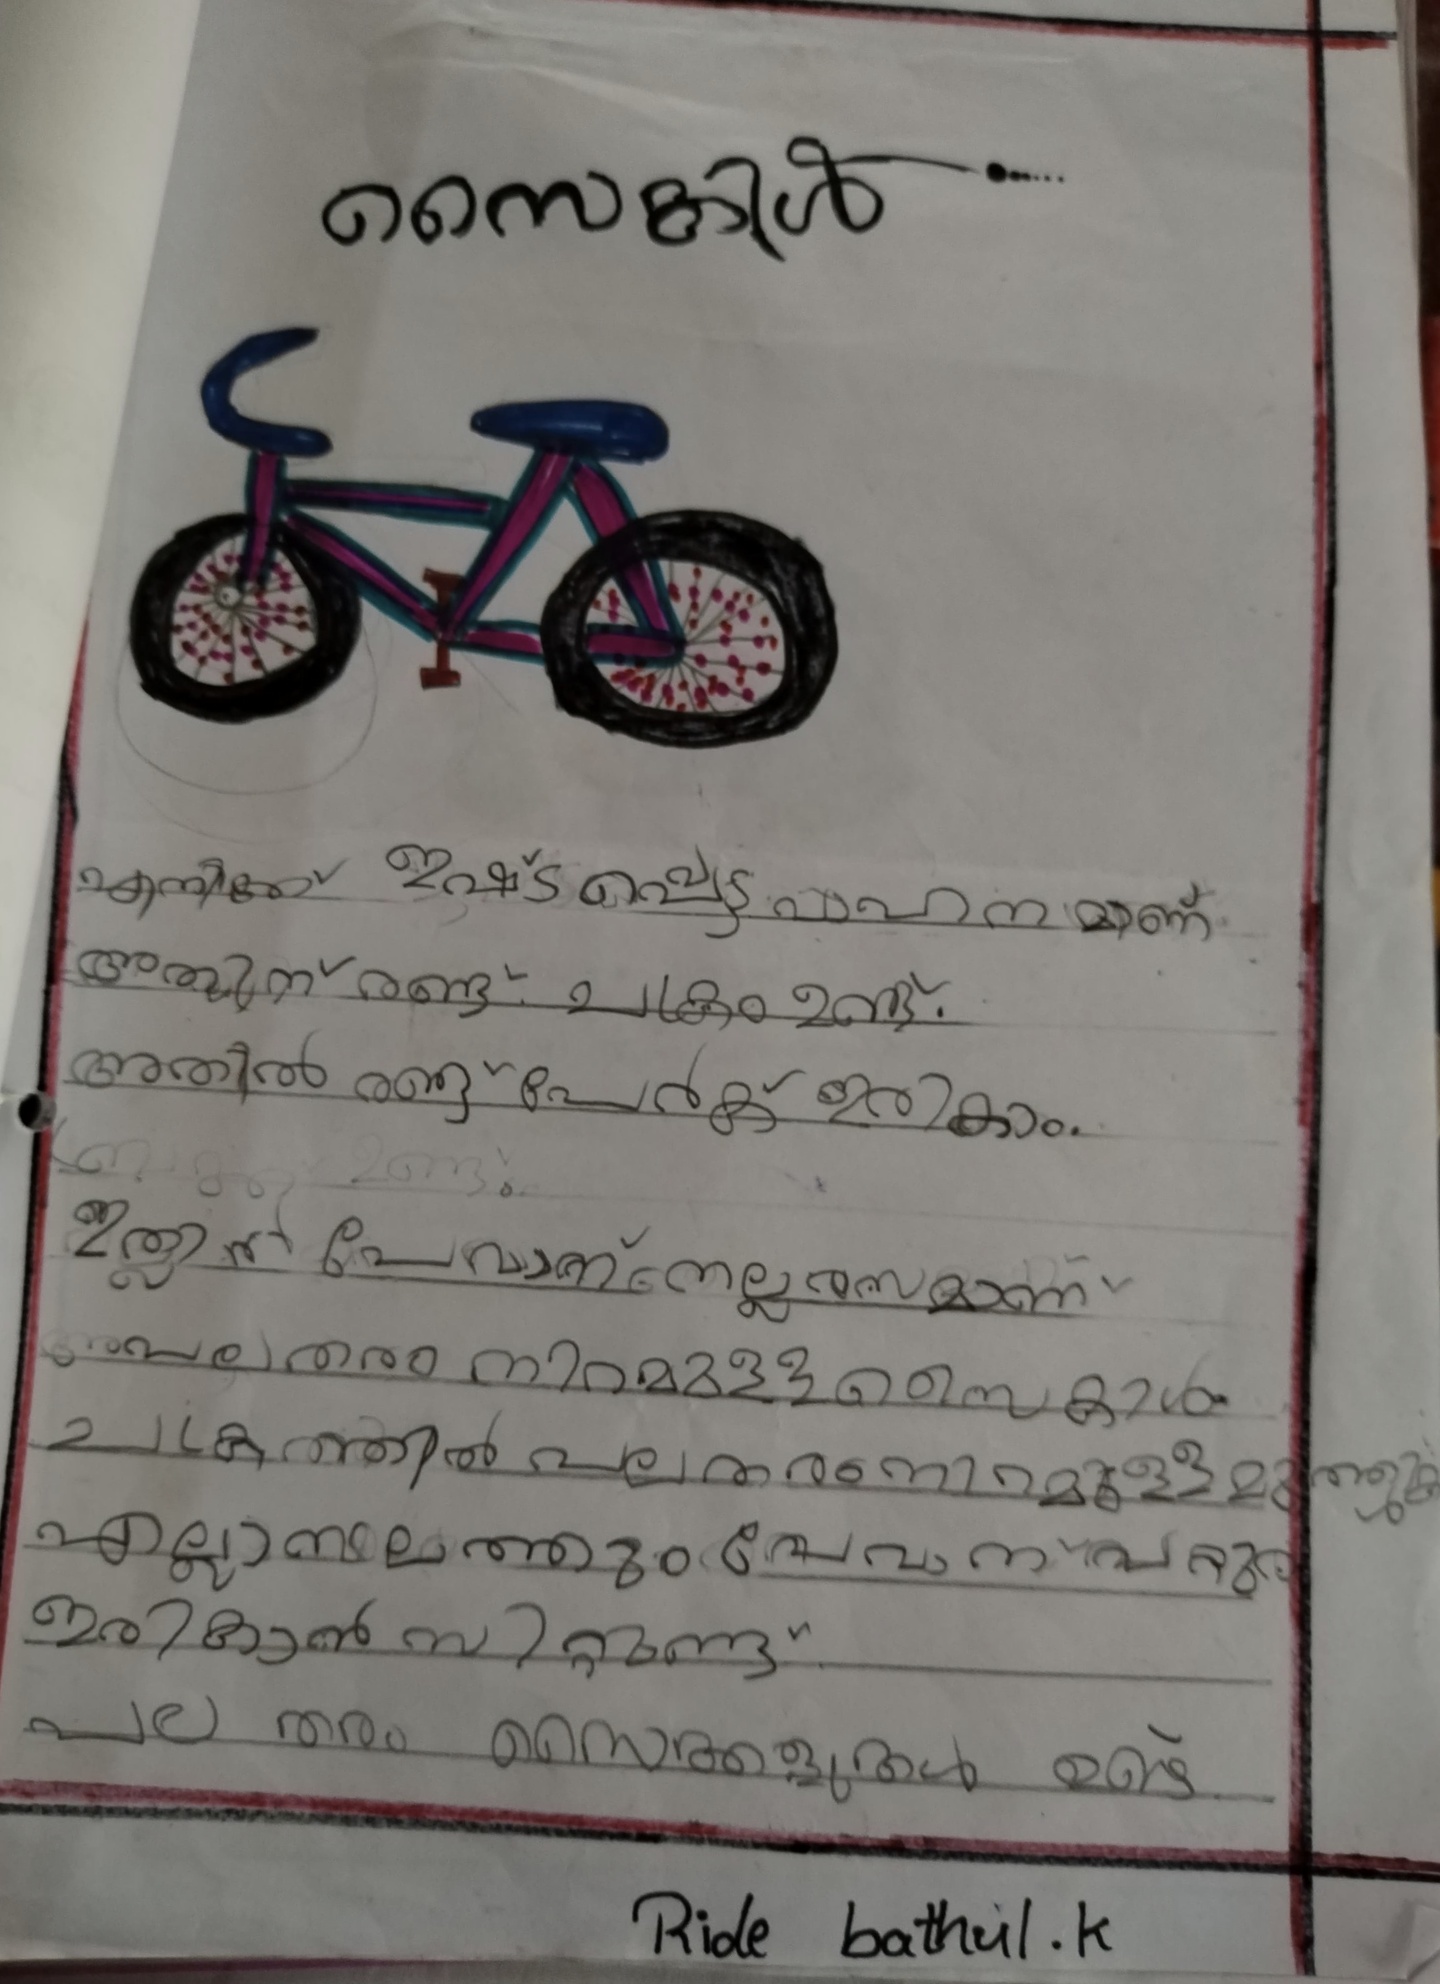 സൈക്കിൾ
എനിക്ക് ഇഷ്ടപ്പെട്ട വാഹനമാണ്
അതിന് രണ്ട് ചക്രം ഉണ്ട്.
അതിൽ രണ്ട് പേർക് ഇരികാം.
ഉണ്ട്.
ഇതിൽ പോവാന് നല്ല രസമാണ്
പല തരം നിറമുള്ള സൈകിൾ
ചക്രത്തിൽ പല തരം നിറമുള്ള മുത്തുക
എല്ലാ സ്ഥലത്തും പോവാന് പറ്റും
ഇരികാൻ സീറ്റുണ്ട്
പല തരം സൈക്കളുകൾ ഉണ്ട്
Ride bathul.k